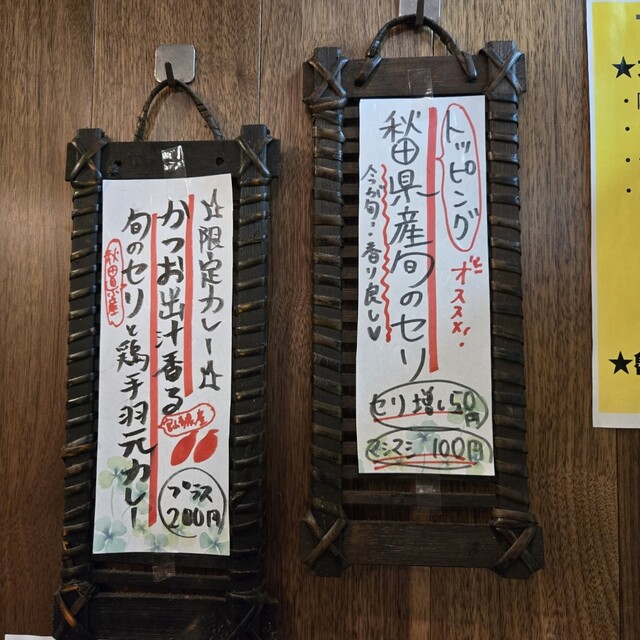 トッピング
オススメ!
秋田県産旬のセリ
今が旬!香り良し
セリ増し50円
マシマシ100円
☆限定カレー☆
かつお出汁香る
秋田県産
旬のセリと鶏手羽元カレー
プラス
200円
★
★